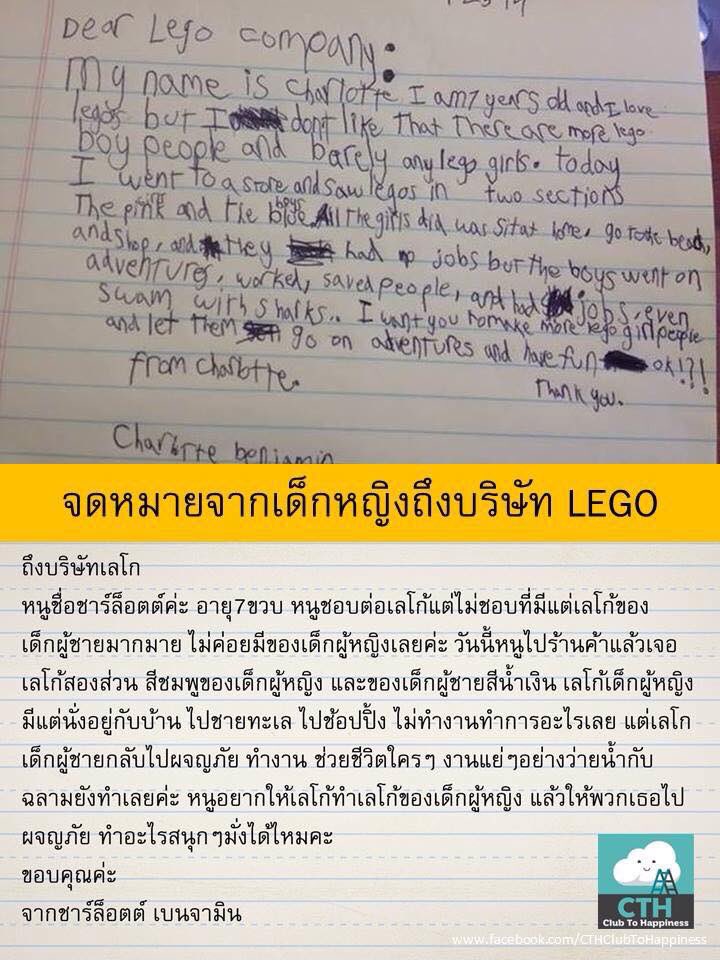 Dear Lego company:
My name is Charlotte I am 7 years old and I love
legos but I dont like that there are more lego
boy people and barely any lego girls. today
I went to a store and saw legos in two sections
The pink girls and the blue boys. All the girls did was sit at home, go to the beach,
and shop, and they had no jobs but the boys went on
adventures, worked, saved people, and had jobs, even
swam with sharks.. I want you to make more lego girl people
and let them go on adventures and have fun ok!?!
from Charlotte.
Thank you.
Charlotte benjamin
จดหมายจากเด็กหญิงถึงบริษัท LEGO
ถึงบริษัทเลโก
หนูชื่อชาร์ล็อตต์ค่ะ อายุ7ขวบ หนูชอบต่อเลโก้แต่ไม่ชอบที่มีแต่เลโก้ของ
เด็กผู้ชายมากมาย ไม่ค่อยมีของเด็กผู้หญิงเลยค่ะ วันนี้หนูไปร้านค้าแล้วเจอ
เลโก้สองส่วน สีชมพูของเด็กผู้หญิง และของเด็กผู้ชายสีน้ำเงิน เลโก้เด็กผู้หญิง
มีแต่นั่งอยู่กับบ้าน ไปชายทะเล ไปช้อปปิ้ง ไม่ทำงานทำการอะไรเลย แต่เลโก
เด็กผู้ชายกลับไปผจญภัย ทำงาน ช่วยชีวิตใครๆ งานแย่ๆอย่างว่ายน้ำกับ
ฉลามยังทำเลยค่ะ หนูอยากให้เลโก้ทำเลโก้ของเด็กผู้หญิง แล้วให้พวกเธอไป
ผจญภัย ทำอะไรสนุกๆมั่งได้ไหมคะ
ขอบคุณค่ะ
จากชาร์ล็อตต์ เบนจามิน
CTH
Club To Happiness
www.facebook.com/CTHClubToHappiness